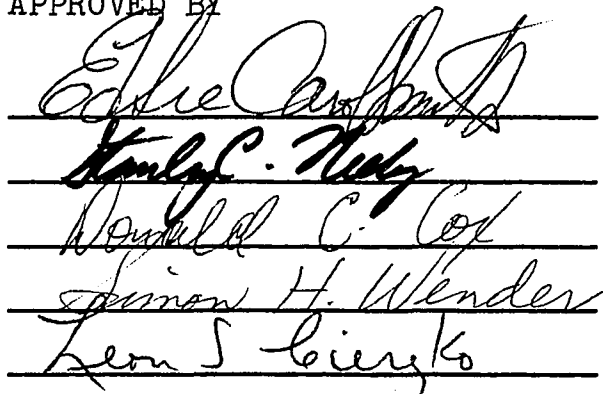 APPROVED BY
Eddie Carol Smith
Stanley C. Neely
Donald C. Cox
Simon H. Wender
Leon S